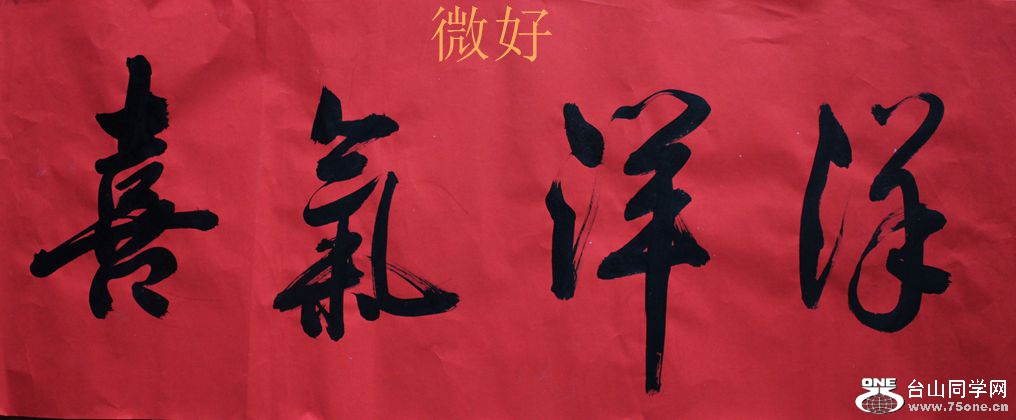 微好
喜氣洋洋
ONE
台山同学网
www.75one.cn